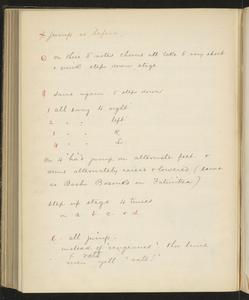 4 jump as before.
on these 5 notes chorus all take 5 very short
+ quick steps down stage
same again 5 steps down
1 all swing to right
2 " " left
3 " " R
4 " " L
On 4 "ha's" jump on alternate feet +
arms alternately raised + lowered (same
as Bashi Bazouks in Fatinitza)
step up stage 4 times
on a b c + d
e - all jump -
instead of vengeance" this time
5 rats
men yell "rats!"